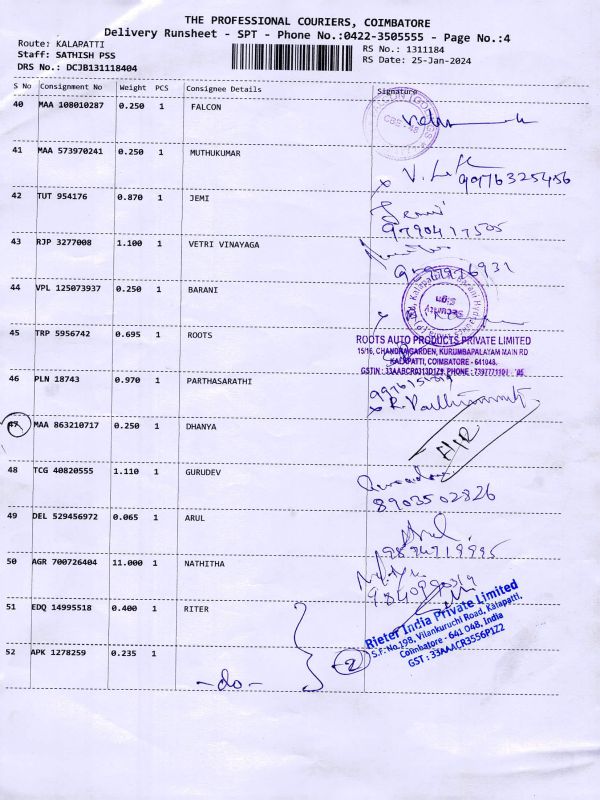 THE PROFESSIONAL COURIERS, COIMBATORE
Delivery Runsheet - SPT - Phone No.:0422-3505555 - Page No.:4
Route: KALAPATTI
RS No.: 1311184
Staff: SATHISH PSS
RS Date: 25-Jan-2024
DRS No.: DCJB131118404
S No Consignment No Weight PCS Consignee Details Signature
40 MAA 108010287 0.250 1 FALCON
41 MAA 573970241 0.250 1 MUTHUKUMAR
9976325456
42 TUT 954176 0.870 1 JEMI
Jemi
9790417505
43 RJP 3277008 1.100 1 VETRI VINAYAGA
44 VPL 125073937 0.250 1 BARANI
45 TRP 5956742 0.695 1 ROOTS
ROOTS AUTO PRODUCTS PRIVATE LIMITED
15/16, CHANDRAGARDEN, KURUMBAPALAYAM MAIN RD
KALAPATTI, COIMBATORE - 641048.
46 PLN 18743 0.970 1 PARTHASARATHI
47 MAA 863210717 0.250 1 DHANYA
48 TCG 40820555 1.110 1 GURUDEV
8903502826
49 DEL 529456972 0.065 1 ARUL
Arul
9894719995
50 AGR 700726404 11.000 1 NATHITHA
51 EDQ 14995518 0.400 1 RITER
Rieter India Private Limited
S.F. No.198, Vilankuruchi Road, Kalapatti,
Coimbatore - 641 048, India
GST : 33AAACR3556P1Z2
52 APK 1278259 0.235 1
-do-
2